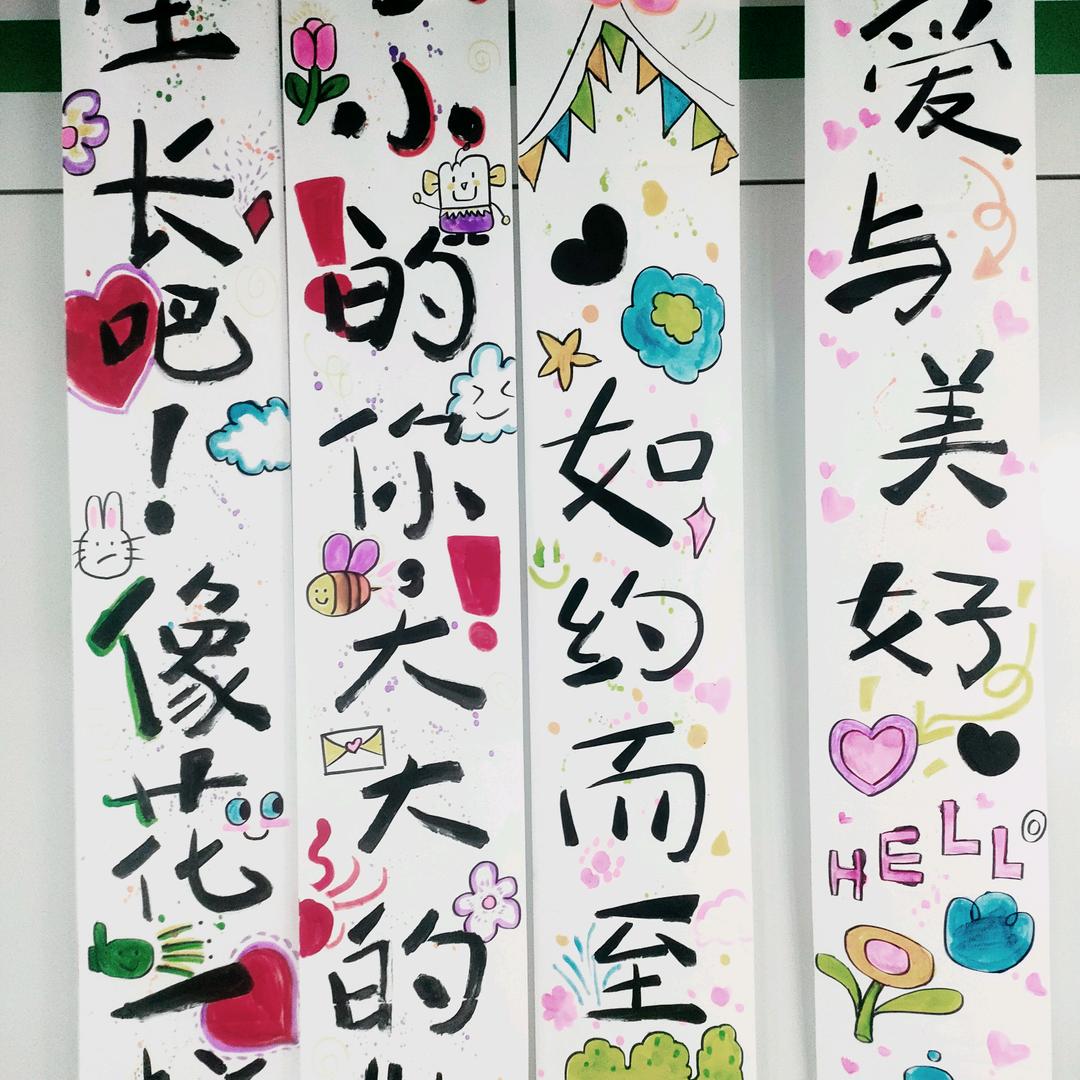 爱与美好
HELLO
如约而至
小的你，大大的
生长吧！像花一